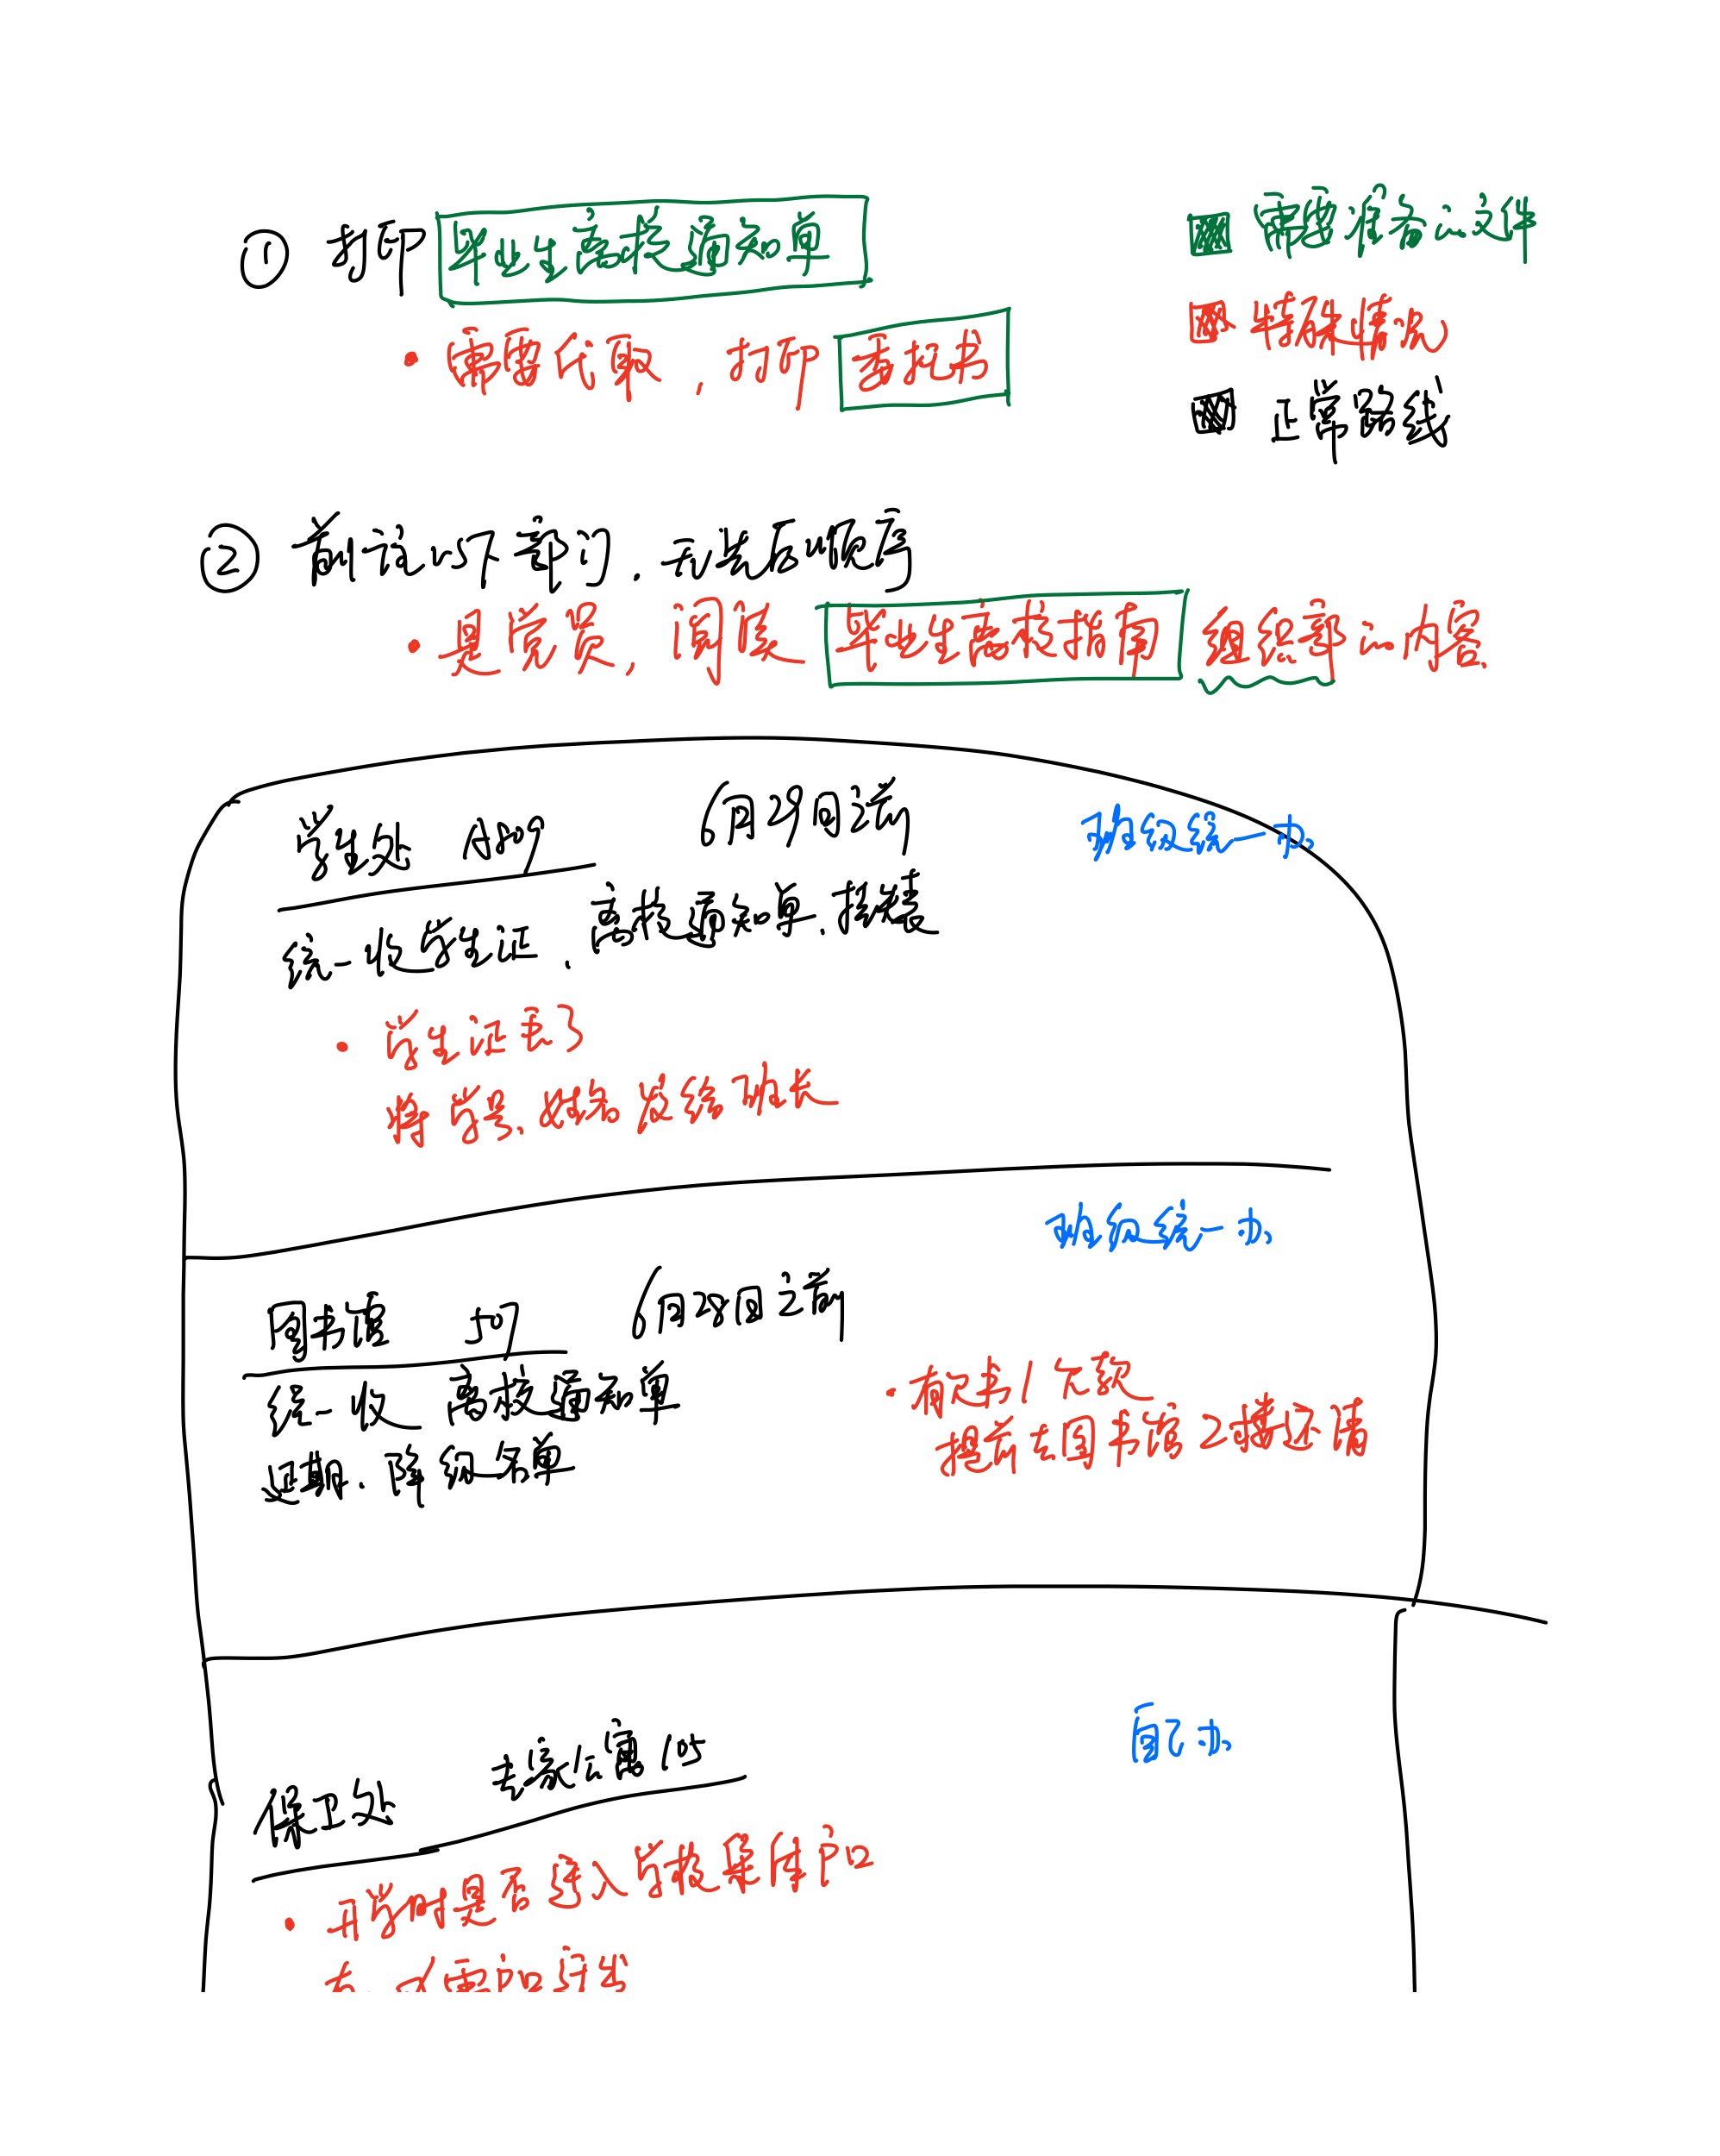 ① 打印 毕业生离校通知单
· 需要代取，打印 委托书
需要准备的文件
特殊情况
正常路线
② 前往以下部门，无先后顺序
· 是党员，阅读 毕业生离校指南 组织部的内容
学生处 6月29日之前 班级统一办
统一收学生证、离校通知单、
· 学生证丢了
将学号、姓名发给班长
班级统一办
图书馆 507 6月28日之前
统一收 离校通知单
延期、降级名单
· 有欠书/欠款
提前去图书馆2楼还清
保卫处 专家公寓105 自己办
· 开学时是否迁入学校集体户口